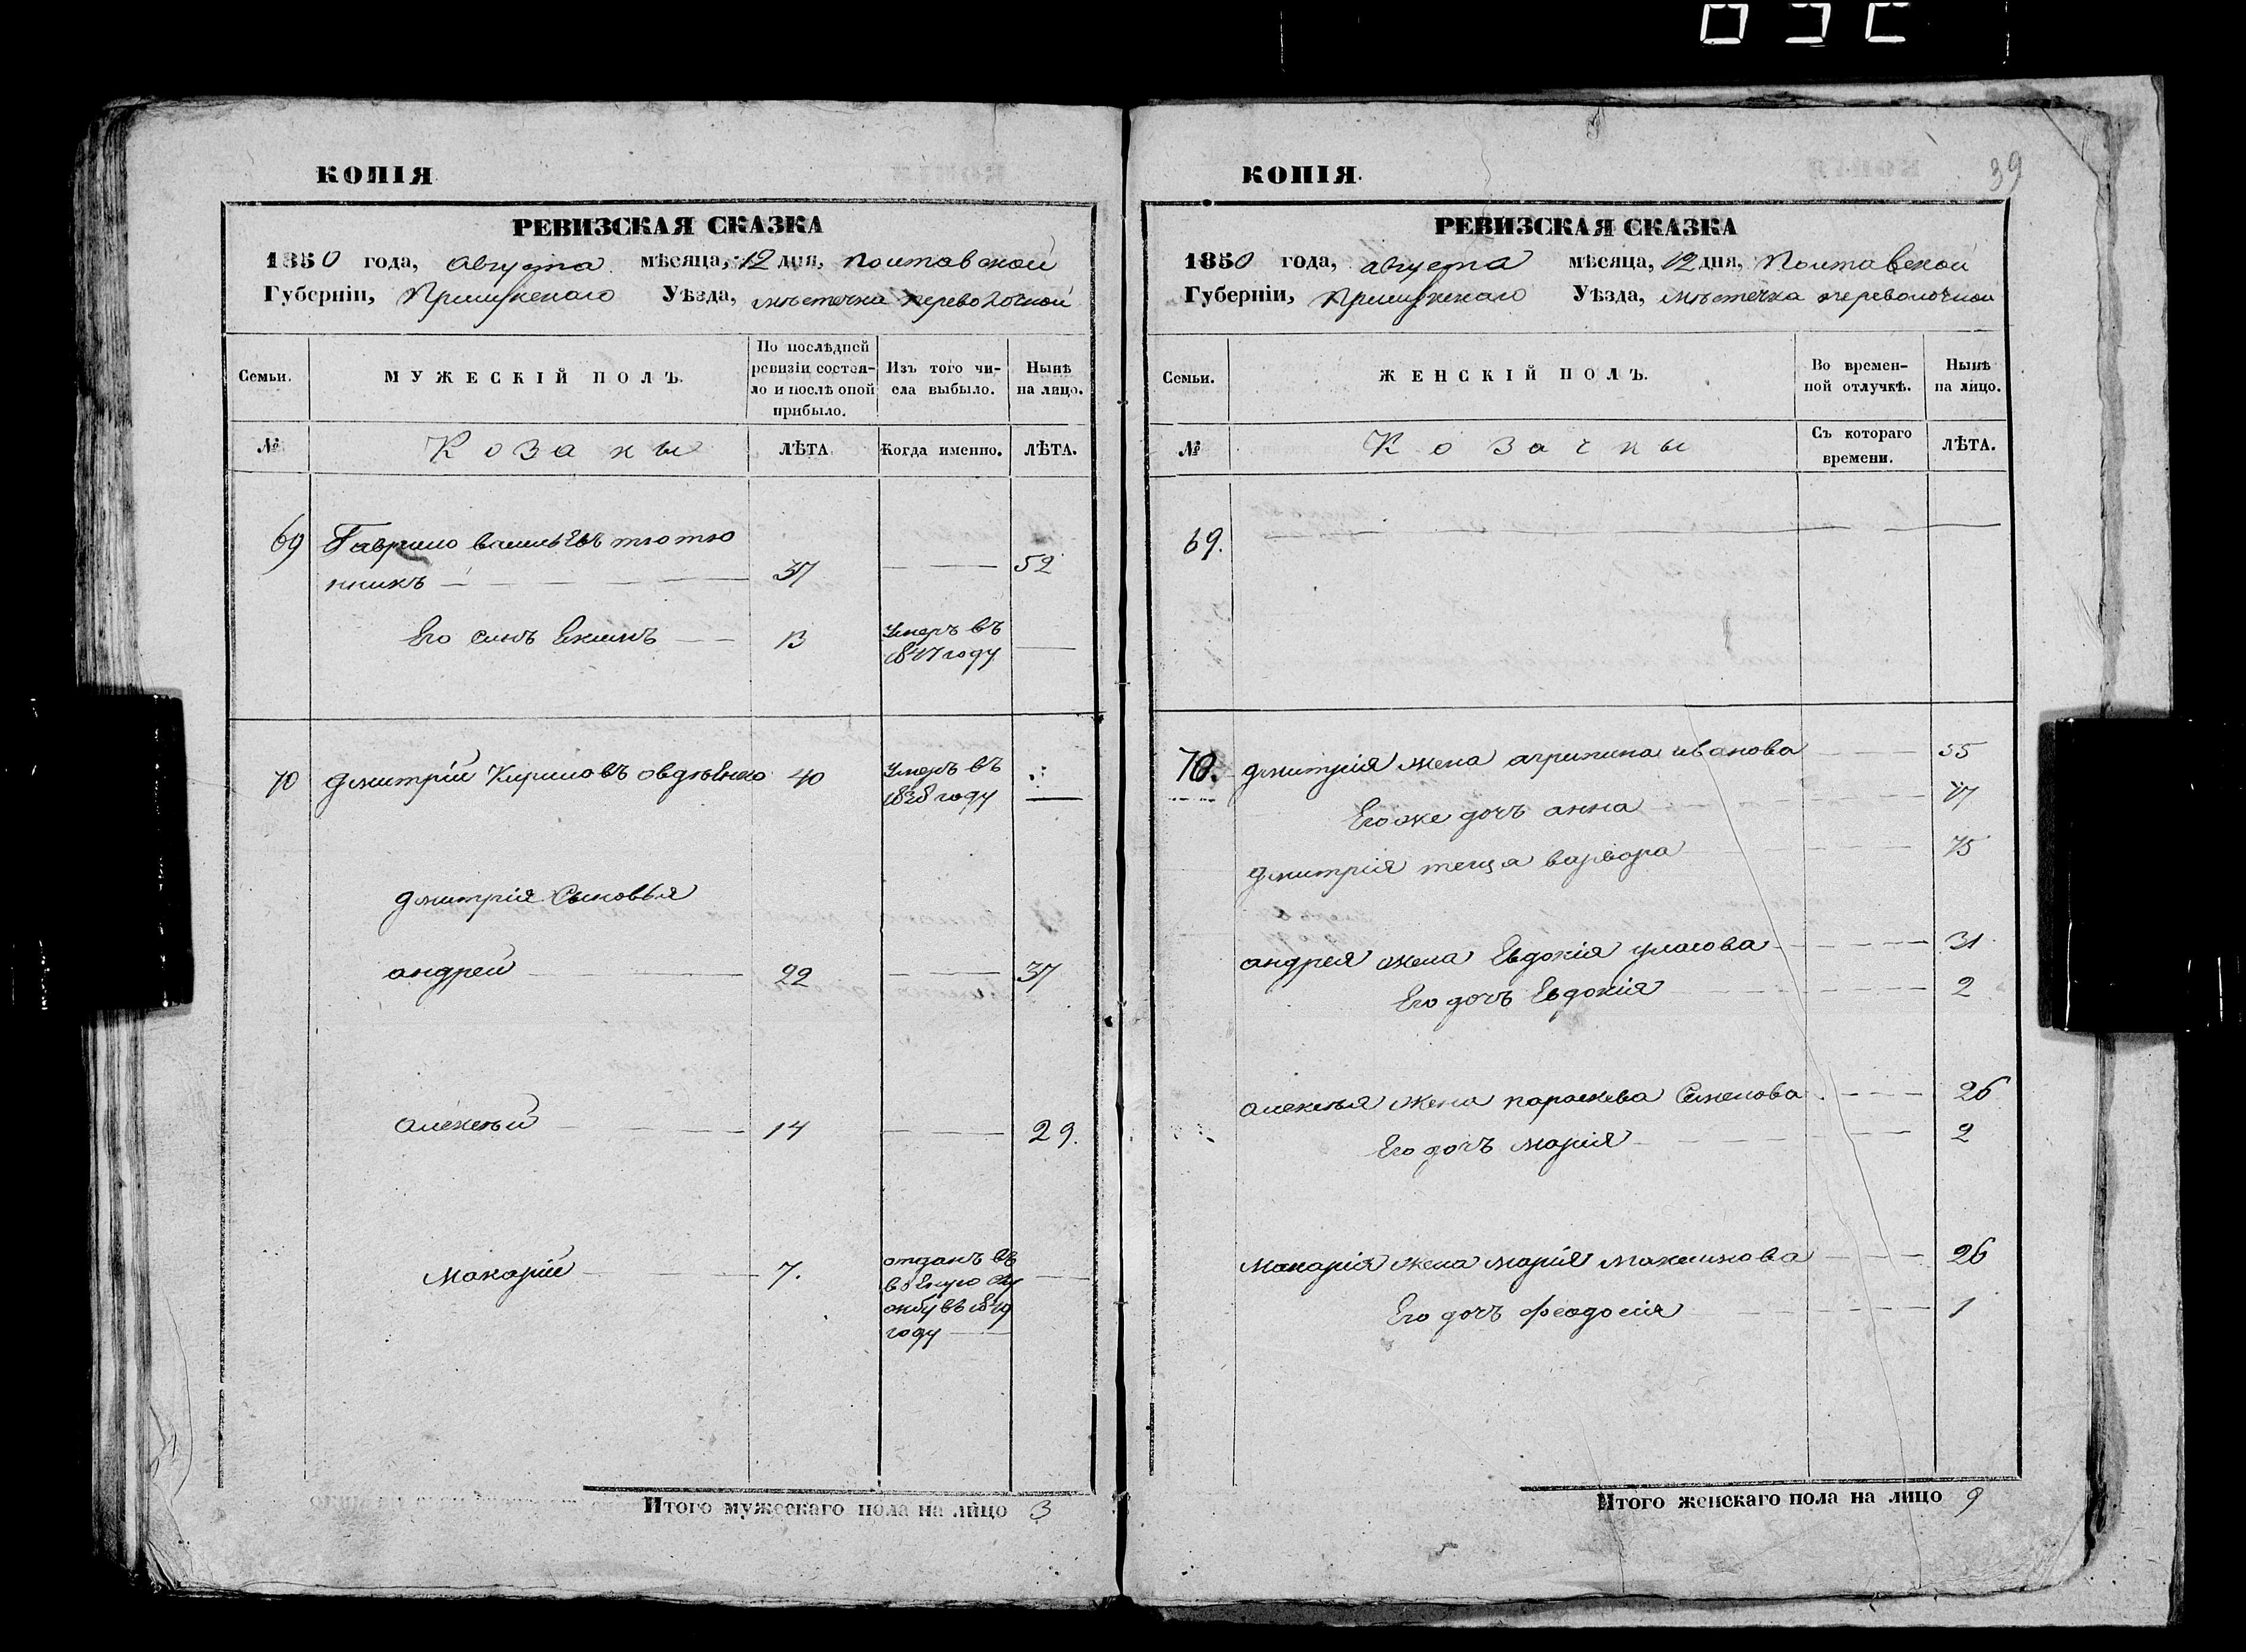 КОПІЯ
РЕВИЗСКАЯ СКАЗКА
1850 года, августа мѣсяца, 12 дня, полтавской
Губерніи, Прилукскаго Уѣзда, мѣстечка переволочной
Семьи. МУЖЕСКІЙ ПОЛЪ. По послѣдней ревизіи состояло и послѣ оной прибыло. Изъ того числа выбыло. Нынѣ на лицо.
№ Козаки ЛѢТА Когда именно. ЛѢТА.
69 Гаврило васильевъ тютю
нникъ 37 52
Его синъ Екимъ 13 Умеръ въ
1847 году
70 дмитрій Кириловъ овдѣенко 40 Умеръ въ
1838 году
дмитрія Сыновья
андрей 22 37
алексѣй 14 29.
макарій 7. отданъ въ
въ году
Итого мужескаго пола на лицо 3
39
КОПІЯ.
РЕВИЗСКАЯ СКАЗКА
1850 года, августа мѣсяца, 12 дня, Полтавской
Губерніи, Прилукскаго Уѣзда, мѣстечка переволочной
Семьи. ЖЕНСКІЙ ПОЛЪ. Во временной отлучкѣ. Нынѣ на лицо.
№ Козачки Съ котораго времени. ЛѢТА.
69.
70. дмитрія жена агрипина иванова 55
Его же дочъ анна 17
дмитрія теща варвора 75
андрея жена Евдокія власова 31
Его дочъ Евдокія 2
алексѣя жена параскева Семенова 26
Его дочъ марія 2
макарія жена марія максимова 26
Его дочъ феодосія 1
Итого женскаго пола на лицо 9